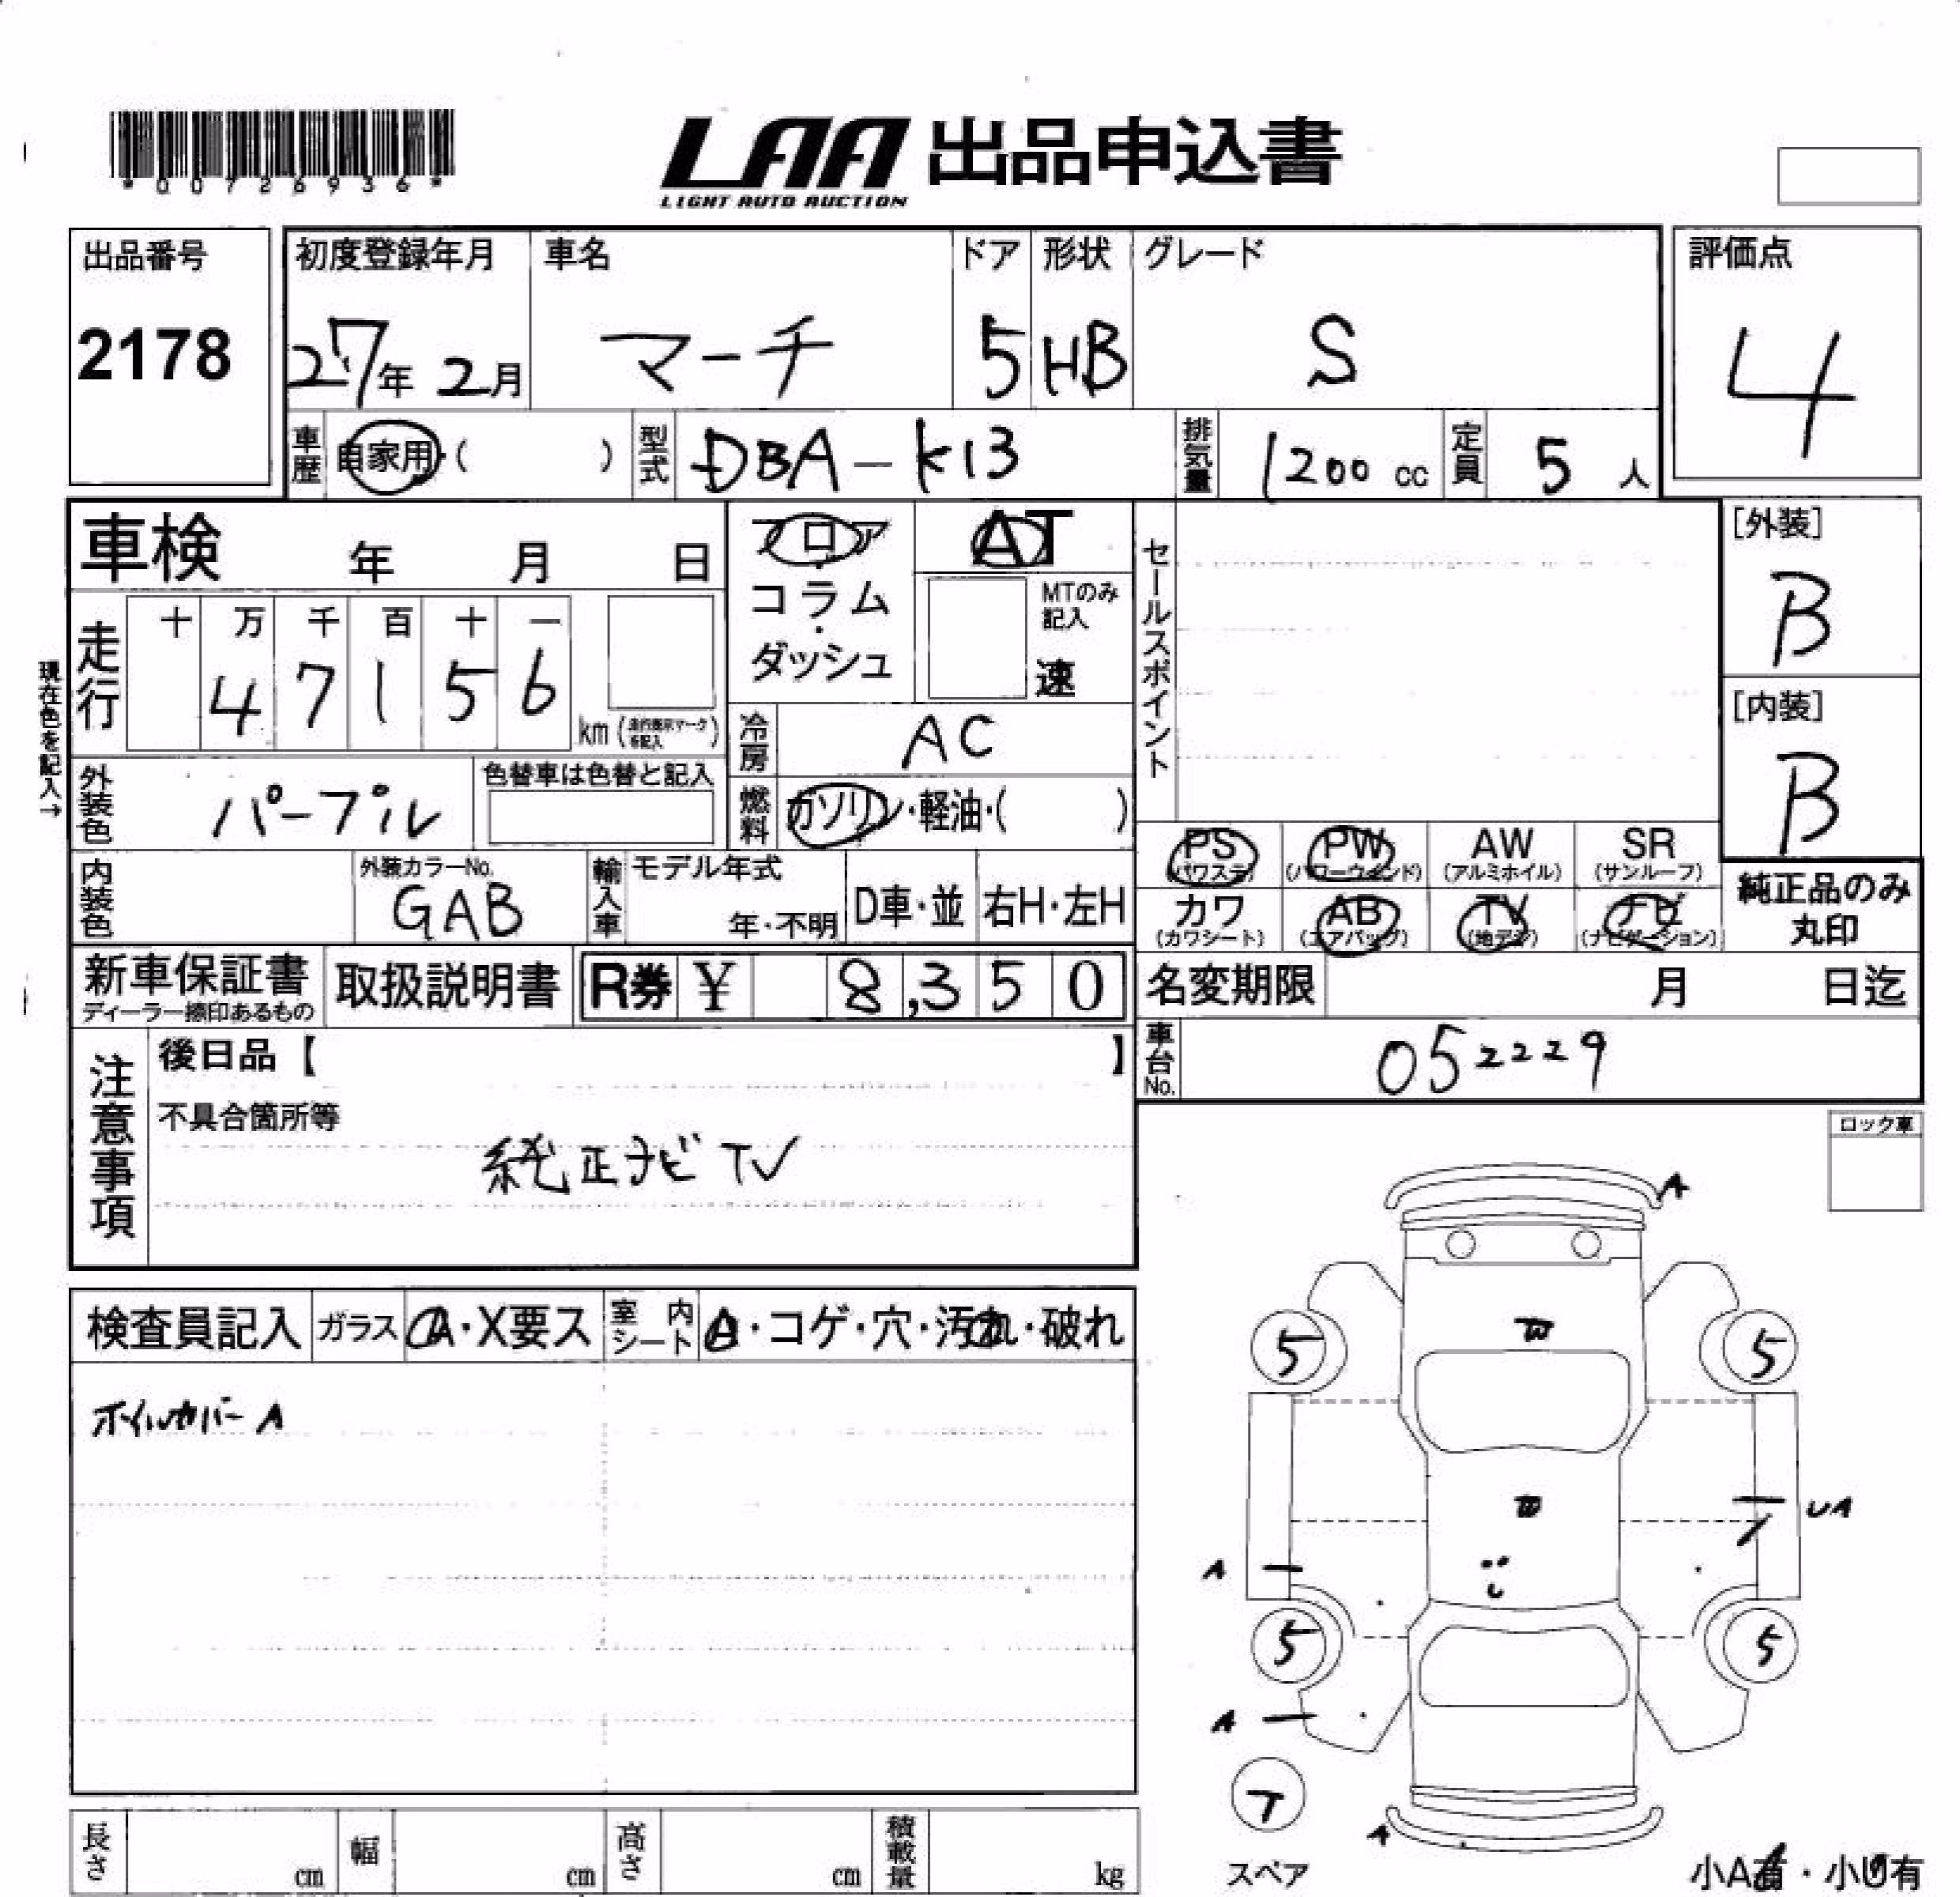 *00726936*
LAA 出品申込書
LIGHT AUTO AUCTION
出品番号 2178
初度登録年月 27年 2月
車名 マーチ
ドア 5
形状 HB
グレード S
評価点 4
車歴 自家用・( )
型式 DBA-K13
排気量 1200 cc
定員 5 人
車検 年 月 日
フロア・コラム・ダッシュ
AT
MTのみ記入 速
セールスポイント
[外装] B
[内装] B
現在色を記入→
走行 十 万 千 百 十 一
4 7 1 5 6 km
冷房 AC
外装色 パープル
色替車は色替と記入
燃料 ガソリン・軽油・( )
PS (パワステ) PW (パワーウィンド) AW (アルミホイル) SR (サンルーフ)
カワ (カワシート) AB (エアバッグ) TV (地デジ) ナビ (ナビゲーション)
純正品のみ丸印
内装色
外装カラーNo. GAB
輸入車 モデル年式 年・不明 D車・並 右H・左H
新車保証書 ディーラー捺印あるもの
取扱説明書
R券 ¥ 8,350
名変期限 月 日迄
車台No. 052229
注意事項
後日品【 】
不具合箇所等
純正ナビ TV
ロック車
検査員記入 ガラス A・X要ス 室内シート A・コゲ・穴・汚れ・破れ
ホイルカバー A
A
W
5 5
W
UA
A
5 5
A
T
スペア
A
小A有・小U有
長さ cm 幅 cm 高さ cm 積載量 kg